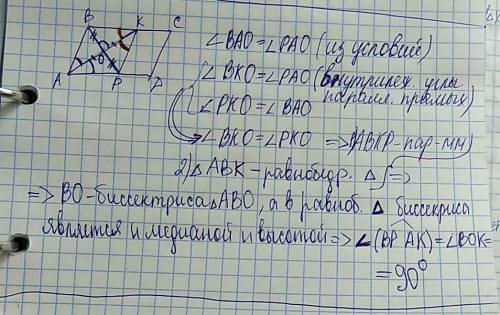 B K C
O
A P D
∠BAO=∠PAO (из условий)
∠BKO=∠PAO (внутрилеж. углы
паралл. прямых)
∠PKO=∠BAO
∠BKO=∠PKO =>(ABKP-пар-мм)
2) △ABK-равнобедр. △ =>
=> BO-биссектриса △ABO, а в равноб. △ биссекриса
является и медианой и высотой => ∠(BP AK)=∠BOK=
=90°